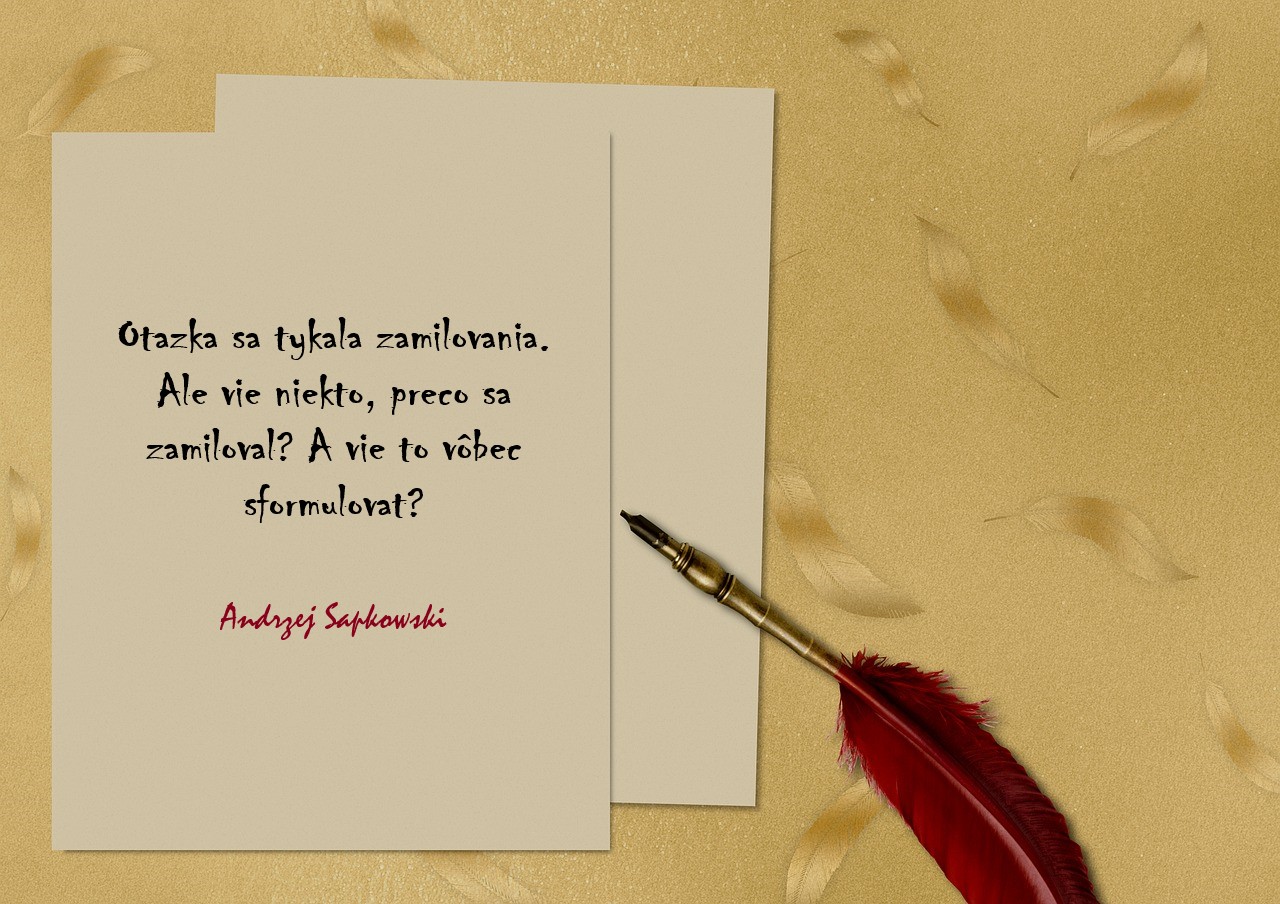 Otazka sa tykala zamilovania.
Ale vie niekto, preco sa
zamiloval? A vie to vôbec
sformulovat?
Andrzej Sapkowski